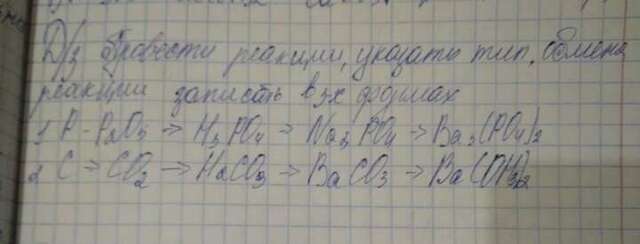 Д/з провести реакции, указать тип, обмена
реакции записать в 3х формах
1 P - P2O5 → H3PO4 → Na3PO4 → Ba3(PO4)2
2 C → CO2 → H2CO3 → BaCO3 → Ba(OH)2